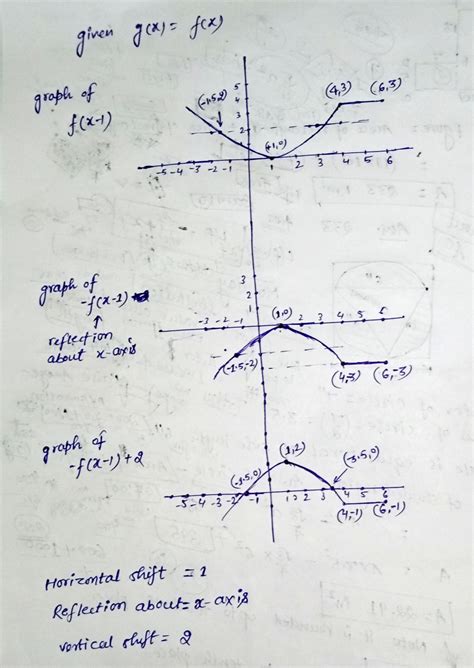 given g(x) = f(x)
graph of
f(x-1)
5
4
3
2
(-1.5,2)
(4,3) (6,3)
(1,0)
-5 -4 -3 -2 -1 1 2 3 4 5 6
graph of
-f(x-1)
↑
reflection
about x-axis
3
2
1
(1,0)
-3 -2 -1 2 3 4 5 6
(-1.5,-2)
(4,-3) (6,-3)
graph of
-f(x-1)+2
(1,2)
(-1.5,0)
(-3.5,0)
-5 -4 -3 -2 1 2 3 4 5 6
(4,-1) (6,-1)
Horizontal shift = 1
Reflection about = x-axis
vertical shift = 2